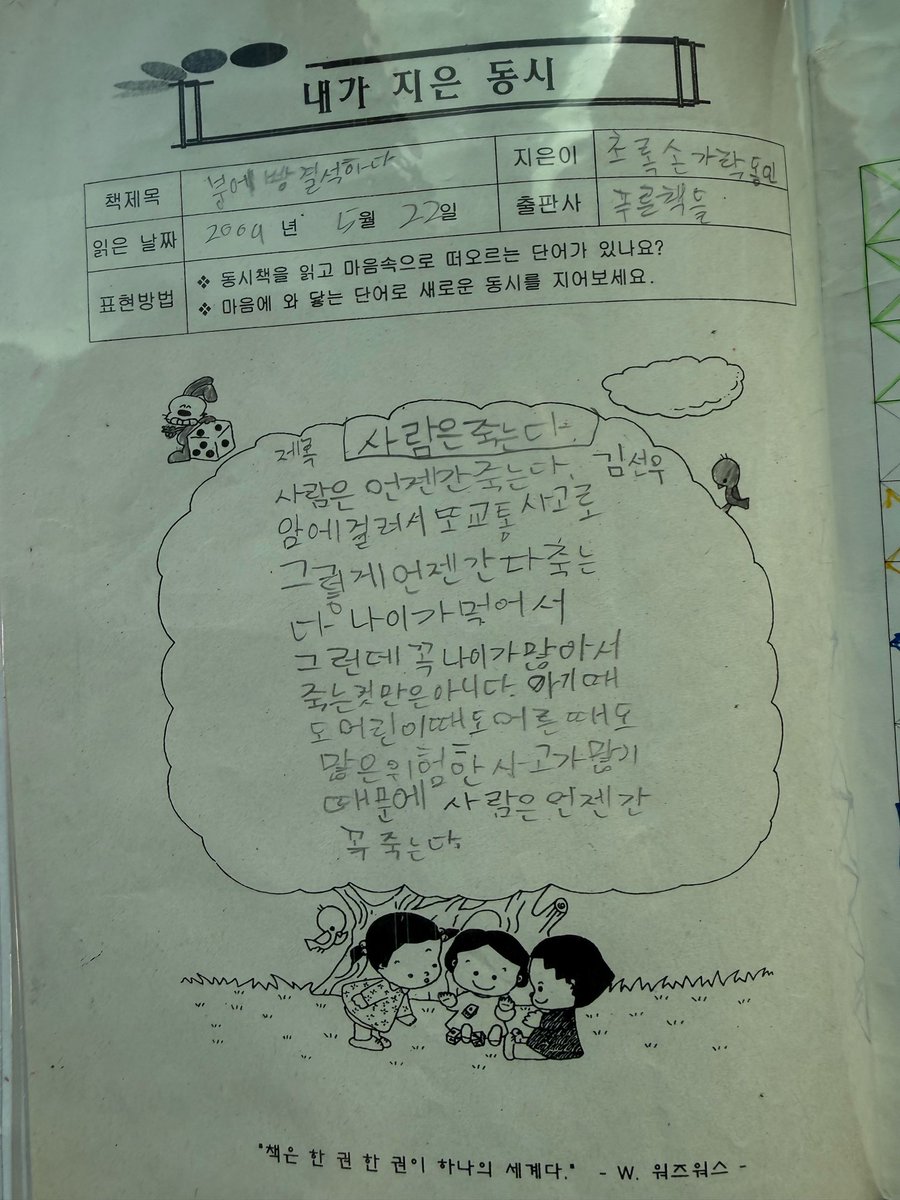 내가 지은 동시
책제목 봄에 빵 결석하다 지은이 초록손가락동인
읽은 날짜 2009 년 5월 22일 출판사 푸를책들
표현방법 ❖ 동시책을 읽고 마음속으로 떠오르는 단어가 있나요?
❖ 마음에 와 닿는 단어로 새로운 동시를 지어보세요.
제목 사람은 죽는다.
사람은 언젠간 죽는다. 김선우
암에 걸려서 또 교통 사고로
그렇게 언젠간 다 죽는
다 나이가 먹어서
그런데 꼭 나이가 많아서
죽는것만은 아니다. 아기때
도 어린이때도 어른때도
많은 위험한 사고가 많기
때문에 사람은 언젠간
꼭 죽는다.
"책은 한 권 한 권이 하나의 세계다." - W. 워즈워스 -